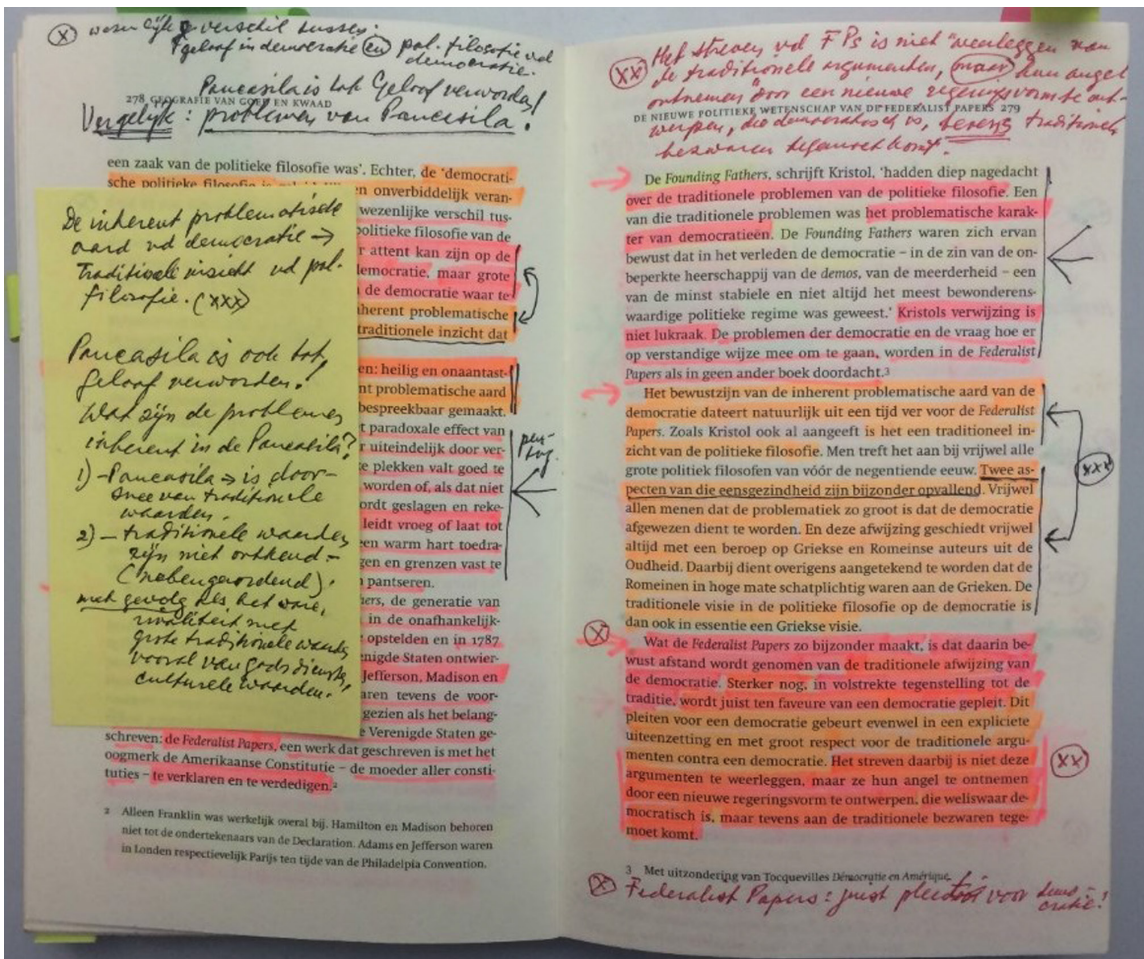 (X) wezenlijke verschil tussen:
geloof in democratie (en) pol. filosofie vd
democratie.
Pancasila is tot Geloof verworden!
278 GEOGRAFIE VAN GOED EN KWAAD
Vergelijk: problemen van Pancasila!
een zaak van de politieke filosofie was'. Echter, de 'democrati-
sche politieke filosofie is
en onverbiddelijk veran-
wezenlijke verschil tus-
politieke filosofie van de
r attent kan zijn op de
democratie, maar grote
de democratie waar te
nherent problematische
traditionele inzicht dat
en: heilig en onaantast-
nt problematische aard
bespreekbaar gemaakt.
t paradoxale effect van
r uiteindelijk door ver-
e plekken valt goed te
worden of, als dat niet
ordt geslagen en reke-
leidt vroeg of laat tot
een warm hart toedra-
gen en grenzen vast te
pantseren.
ers, de generatie van
in de onafhankelijk-
opstelden en in 1787
enigde Staten ontwier-
Jefferson, Madison en
aren tevens de voor-
gezien als het belang-
e Verenigde Staten ge-
schreven: de Federalist Papers, een werk dat geschreven is met het
oogmerk de Amerikaanse Constitutie – de moeder aller consti-
tuties – te verklaren en te verdedigen.²
2 Alleen Franklin was werkelijk overal bij. Hamilton en Madison behoren
niet tot de ondertekenaars van de Declaration. Adams en Jefferson waren
in Londen respectievelijk Parijs ten tijde van de Philadelpia Convention.
De inherent problematische
aard vd democratie →
Traditionele inzicht vd pol.
filosofie. (xxx)
Pancasila is ook tot
geloof verworden!
Wat zijn de problemen
inherent in de Pancasila?
1) - Pancasila → is door-
snee van traditionele
waarden.
2) - traditionele waarden
zijn niet ontkend -
(nebengeordend).
met gevolg als het ware,
rivaliteit met
grote traditionele waarden
vooral van godsdienst,
culturele waarden.
(XX) Het streven vd FPs is niet "weerleggen van
de traditionele argumenten, (maar) hun angel
ontnemen" door een nieuwe regeringsvorm te ont-
DE NIEUWE POLITIEKE WETENSCHAP VAN DE FEDERALIST PAPERS 279
werpen, die democratisch is, tevens traditionele
bezwaren tegemoet komt.
De Founding Fathers, schrijft Kristol, 'hadden diep nagedacht
over de traditionele problemen van de politieke filosofie. Een
van die traditionele problemen was het problematische karak-
ter van democratieën. De Founding Fathers waren zich ervan
bewust dat in het verleden de democratie – in de zin van de on-
beperkte heerschappij van de demos, van de meerderheid – een
van de minst stabiele en niet altijd het meest bewonderens-
waardige politieke regime was geweest.' Kristols verwijzing is
niet lukraak. De problemen der democratie en de vraag hoe er
op verstandige wijze mee om te gaan, worden in de Federalist
Papers als in geen ander boek doordacht.³
Het bewustzijn van de inherent problematische aard van de
democratie dateert natuurlijk uit een tijd ver voor de Federalist
Papers. Zoals Kristol ook al aangeeft is het een traditioneel in-
zicht van de politieke filosofie. Men treft het aan bij vrijwel alle
grote politiek filosofen van vóór de negentiende eeuw. Twee as-
pecten van die eensgezindheid zijn bijzonder opvallend. Vrijwel
allen menen dat de problematiek zo groot is dat de democratie
afgewezen dient te worden. En deze afwijzing geschiedt vrijwel
altijd met een beroep op Griekse en Romeinse auteurs uit de
Oudheid. Daarbij dient overigens aangetekend te worden dat de
Romeinen in hoge mate schatplichtig waren aan de Grieken. De
traditionele visie in de politieke filosofie op de democratie is
dan ook in essentie een Griekse visie.
(xxx)
(X)
Wat de Federalist Papers zo bijzonder maakt, is dat daarin be-
wust afstand wordt genomen van de traditionele afwijzing van
de democratie. Sterker nog, in volstrekte tegenstelling tot de
traditie, wordt juist ten faveure van een democratie gepleit. Dit
pleiten voor een democratie gebeurt evenwel in een expliciete
uiteenzetting en met groot respect voor de traditionele argu-
menten contra een democratie. Het streven daarbij is niet deze
argumenten te weerleggen, maar ze hun angel te ontnemen
door een nieuwe regeringsvorm te ontwerpen, die weliswaar de-
mocratisch is, maar tevens aan de traditionele bezwaren tege-
moet komt.
(XX)
3 Met uitzondering van Tocquevilles Démocratie en Amérique.
(X) Federalist Papers: juist pleidooi voor demo-
cratie!